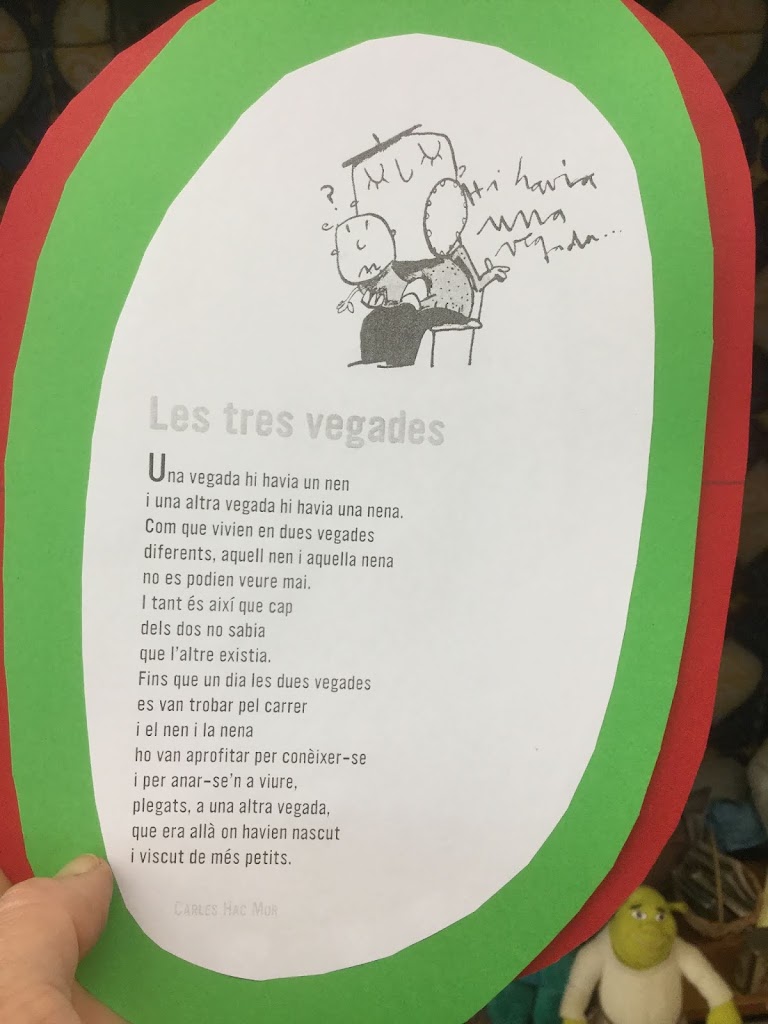 ?
Hi havia
una
vegada...
Les tres vegades
Una vegada hi havia un nen
i una altra vegada hi havia una nena.
Com que vivien en dues vegades
diferents, aquell nen i aquella nena
no es podien veure mai.
I tant és així que cap
dels dos no sabia
que l'altre existia.
Fins que un dia les dues vegades
es van trobar pel carrer
i el nen i la nena
ho van aprofitar per conèixer-se
i per anar-se'n a viure,
plegats, a una altra vegada,
que era allà on havien nascut
i viscut de més petits.
CARLES HAC MOR